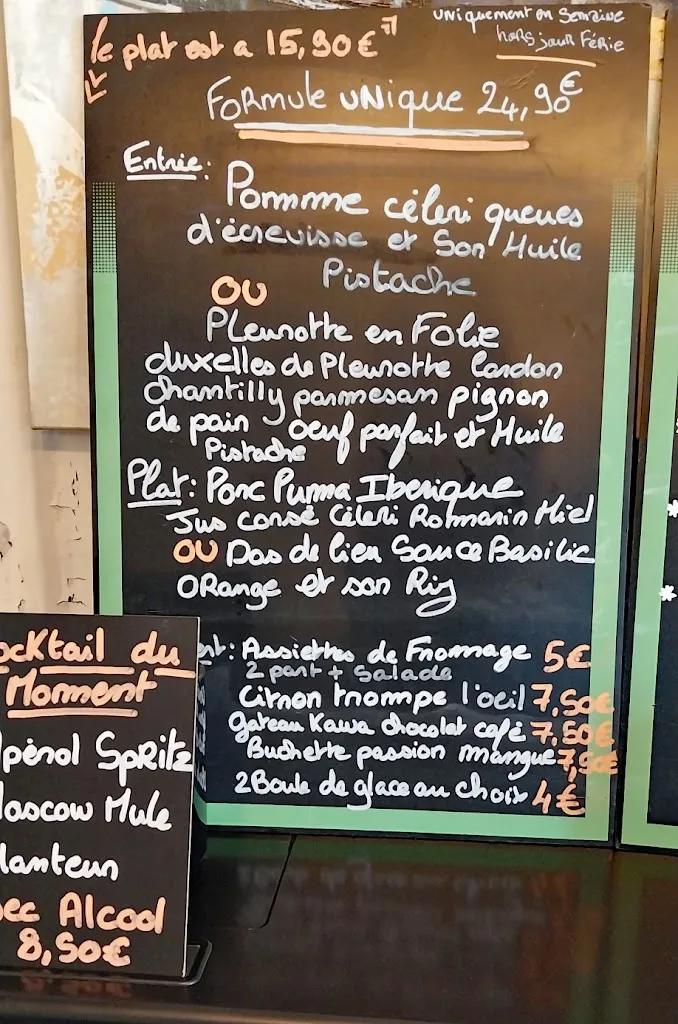 le plat est a 15,90€
uniquement en Semaine
hors jour Férie
Formule unique 24,90€
Entrée:
Pommme céleri queues
d'écrevisse et Son Huile
Pistache
OU
Pleurotte en Folie
duxelles de Pleurotte Lardon
Chantilly parmesan pignon
de pain oeuf parfait et Huile
Pistache
Plat: Porc Puma Iberique
Jus corsé Céleri Rommarin Miel
OU Dos de lieu Sauce Basilic
ORange et son Riz
Assiettes de Frommage 5€
2 part + Salade
Citron trompe l'oeil 7,50€
gateau Kawa chocolat café 7,50€
Buchette passion mangue 7,50€
2 Boule de glace au choix 4€
ocktail du
Moment
pérol Spritz
oscow Mule
lanteur
ec Alcool
8,50€